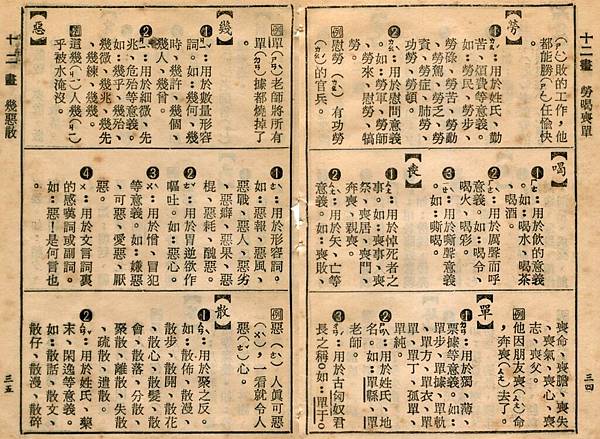 十二畫 勞喝喪單
三四
敗的工作,他
都能勝( )任愉快
。
【勞】
❶ :用於姓氏、勤
苦、煩費等意義。
如:勞民、勞步、
勞碌、勞苦、勞動
、勞駕、勞乏、勞
資、勞症、肺勞、
勞功、勞頓。
❷ :用於慰問意義
。如:勞軍、勞師
、勞來、慰勞、犒
勞。
例 慰勞( )有功勞
( )的官兵。
【喝】
❶ :用於飲的意義
。如:喝水、喝茶
、喝酒。
❷ :用於厲聲而呼
意義。如:喝令、
喝火、喝彩。
❸ :用於嘶聲意義
。如:嘶喝。
【喪】
❶ :用於悼死者之
事。如:喪事、喪
祭、喪居、喪門、
奔喪、親喪。
❷ :用於失、亡等
意義。如:喪敗、
喪命、喪膽、喪失
、喪氣、喪心、喪
志、喪父。
例 他因朋友喪( )命
,奔喪( )去了。
【單】
❶ :用於獨、薄、
票據等意義。如:
單步、單據、單軌
、單方、單衣、單
、單丁、孤單、
單純。
❷ :用於姓氏、地
名。如:單縣、單
老師。
❸ :用於古匈奴君
長之稱。如:單于。
十二畫 幾惡散
三五
例 單( )老師將所有
單( )據都燒掉了
。
【幾】
❶ :用於數量形容
詞。如:幾何、幾
時、幾許、幾個、
幾人、幾曾。
❷ :用於細微、先
兆、危殆等意義。
如:幾乎、幾殆、
幾微、幾兆、幾先
、幾練、幾幾。
例 這幾( )人幾( )
乎被水淹沒。
【惡】
❶ :用於形容詞。
如:惡報、惡風、
惡戰、惡人、惡劣
、惡癖、惡果、惡
棍、惡耗、醜惡。
❷ :用於胃逆欲作
嘔吐。如:惡心。
❸ :用於憎、冒犯
等意義。如:嫌惡
、可惡、愛惡、厭
惡。
❹ :用於文言詞裏
的感嘆詞或副詞。
如:惡!是何言也
。
例 惡( )人眞可惡
( ),一看就令人
惡( )心。
【散】
❶ :用於聚之反。
如:散佈、散漫、
散步、散開、散花
、散心、散髮、散
會、散落、分散、
聚散、離散、失散
、疏散、遣散。
❷ :用於姓氏、藥
末、閑逸等意義。
如:散話、散文、
散仔、散漫、散碎